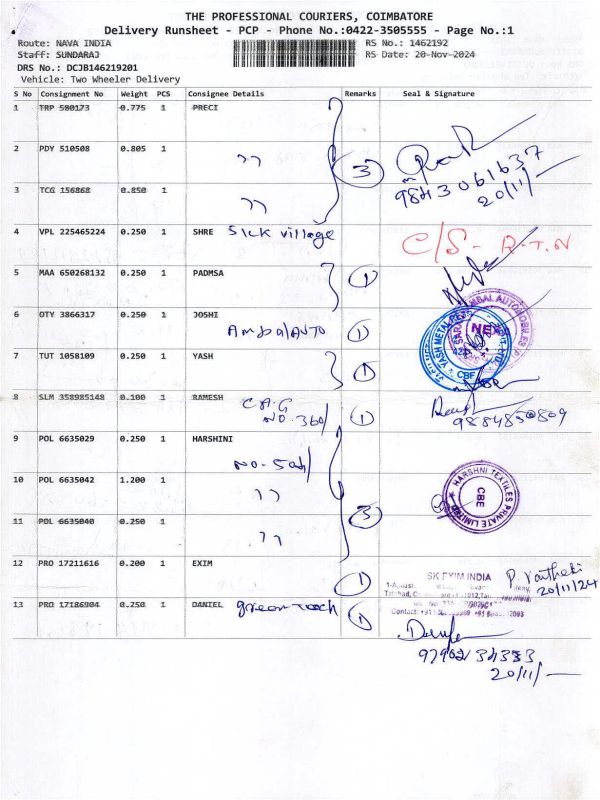 THE PROFESSIONAL COURIERS, COIMBATORE
Delivery Runsheet - PCP - Phone No.:0422-3505555 - Page No.:1
Route: NAVA INDIA RS No.: 1462192
Staff: SUNDARAJ RS Date: 20-Nov-2024
DRS No.: DCJB146219201
Vehicle: Two Wheeler Delivery
S No Consignment No Weight PCS Consignee Details Remarks Seal & Signature
1 TRP 580173 0.775 1 PRECI
2 PDY 510508 0.805 1 ,, 3
9843061637
20/11/
3 TCG 156868 0.850 1 ,,
4 VPL 225465224 0.250 1 SHRE Sick village C/S - R.T.N
5 MAA 650268132 0.250 1 PADMSA 1
6 OTY 3866317 0.250 1 JOSHI
Ambal AUTO 1
7 TUT 1058109 0.250 1 YASH 1
YASH METAL CBE
AMBAL AUTOMOBILES
NEXA
8 SLM 358985148 0.100 1 RAMESH
C.A.G
NO.360/ 1
9884850809
9 POL 6635029 0.250 1 HARSHINI
NO-501/
10 POL 6635042 1.200 1 ,,
HARSHNI TEXTILES PRIVATE LIMITED CBE
11 POL 6635040 0.250 1 ,, 3
12 PRO 17211616 0.200 1 EXIM 1
SK EXIM INDIA
Contact: +91
20/11/24
13 PRO 17186904 0.250 1 DANIEL 1
20/11/